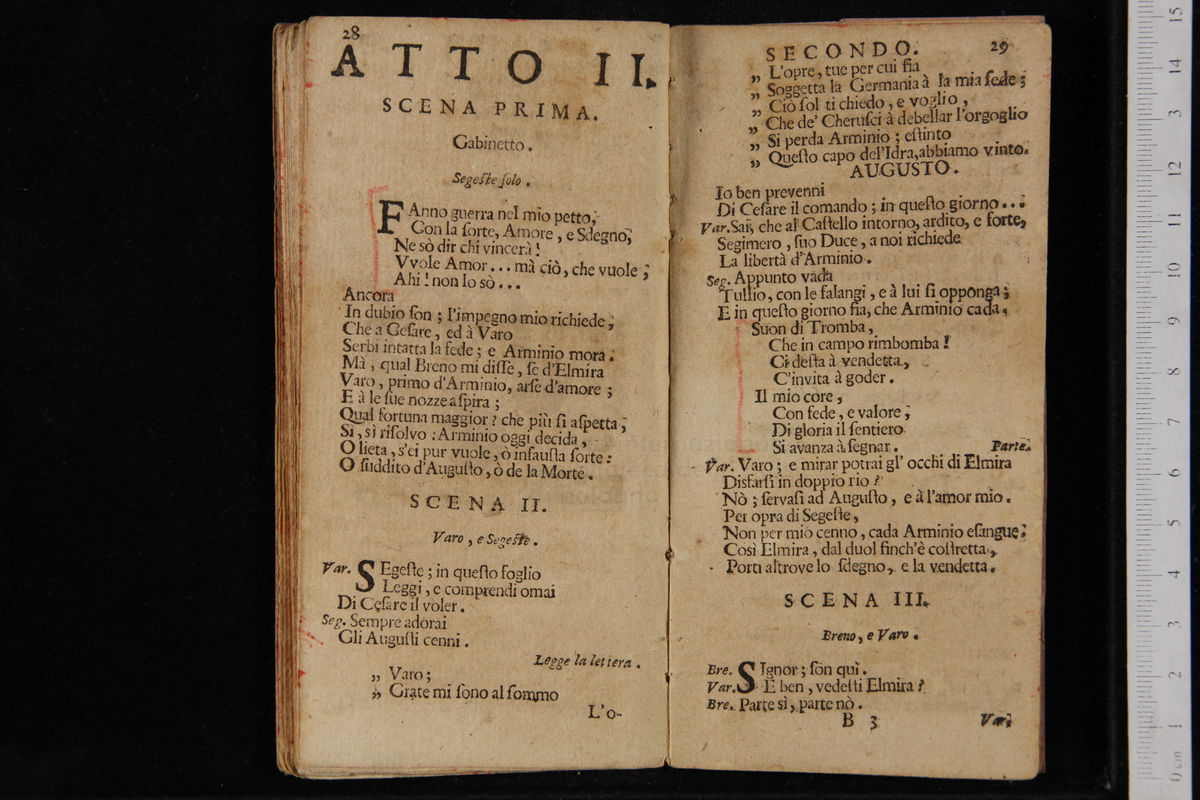 28
ATTO II.
SCENA PRIMA.
Gabinetto.
Segeſte ſolo.
FAnno guerra nel mio petto,
Con la ſorte, Amore, e Sdegno;
Ne sò dir chi vincerà!
Vvole Amor... mà ciò, che vuole;
Ahi! non lo sò...
Ancora
In dubio ſon; l'impegno mio richiede,
Che a Ceſare, ed à Varo
Serbi intatta la fede; e Arminio mora.
Mà, qual Breno mi diſſe, ſe d'Elmira
Varo, primo d'Arminio, arſe d'amore;
E à le ſue nozze aſpira;
Qual fortuna maggior? che più ſi aſpetta;
Sì, sì riſolvo: Arminio oggi decida,
O lieta, s'ei pur vuole, ò infauſta ſorte:
O ſuddito d'Auguſto, ò de la Morte.
SCENA II.
Varo, e Segeſte.
Var. SEgeſte; in queſto foglio
Leggi, e comprendi omai
Di Ceſare il voler.
Seg. Sempre adorai
Gli Auguſti cenni.
Legge la lettera.
„ Varo;
„ Grate mi ſono al ſommo
L'o-
SECONDO. 29
„ L'opre, tue per cui fia
„ Soggetta la Germania à la mia ſede;
„ Ciò ſol ti chiedo, e voglio,
„ Che de' Cheruſci à debellar l'orgoglio
„ Si perda Arminio; eſtinto
„ Queſto capo del'Idra, abbiamo vinto.
AUGUSTO.
Io ben prevenni
Di Ceſare il comando; in queſto giorno...
Var. Sai, che al Caſtello intorno, ardito, e forte,
Segimero, ſuo Duce, a noi richiede
La libertà d'Arminio.
Seg. Appunto vada
Tullio, con le falangi, e à lui ſi opponga;
E in queſto giorno fia, che Arminio cada.
Suon di Tromba,
Che in campo rimbomba!
Ci deſta à vendetta,
C'invita à goder.
Il mio core,
Con fede, e valore,
Di gloria il ſentiero
Si avanza à ſegnar. Parte.
Var. Varo; e mirar potrai gl' occhi di Elmira
Disfarſi in doppio rio?
Nò; ſervaſi ad Auguſto, e à l'amor mio.
Per opra di Segeſte,
Non per mio cenno, cada Arminio eſangue:
Così Elmira, dal duol finch'è coſtretta,
Porti altrove lo ſdegno, e la vendetta.
SCENA III.
Breno, e Varo.
Bre. SIgnor; ſon quì.
Var. E ben, vedeſti Elmira?
Bre. Parte sì, parte nò.
B 3 Var.